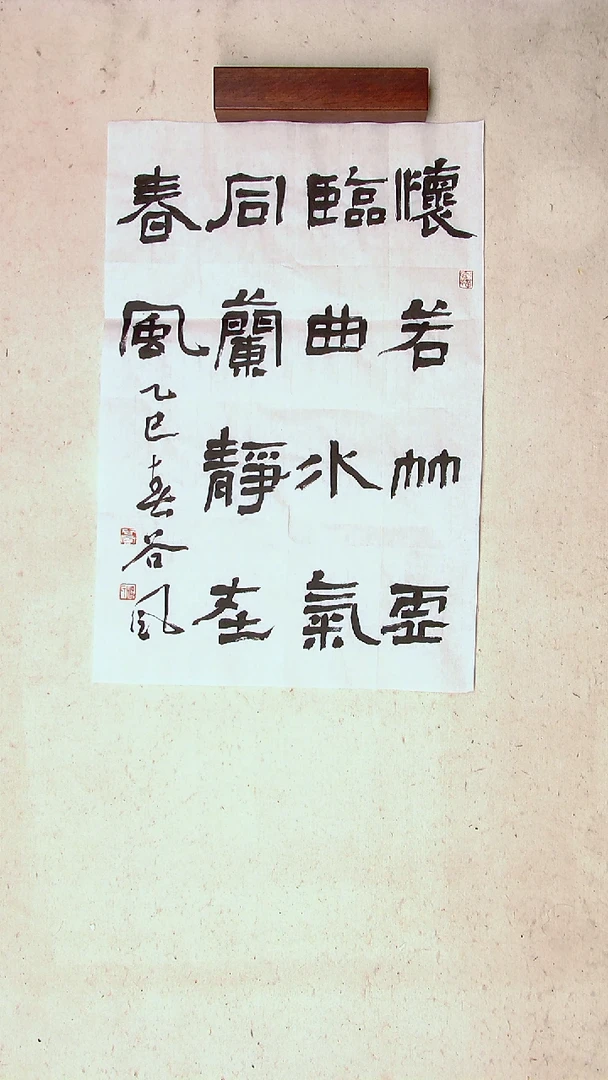 懷若竹虛
臨曲水氣
同蘭靜在
春風
乙巳春谷風